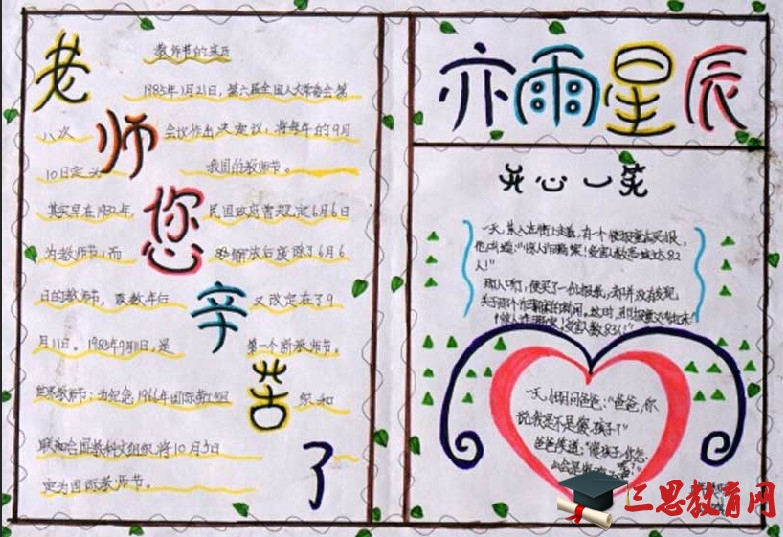 老师您辛苦了
教师节的来历
1985年1月21日，第六届全国人大常委会第
八次 会议作出决定议，将每年的9月
10日定为 我国的教师节。
其实早在1932年， 民国政府曾规定6月6日
为教师节，而 解放后废除了6月6
日的教师节， 又改定在了9
月11日。1985年9月10日，是 第一个新教师节。
世界教师节：为纪念1966年国际劳工组 织和
联和合国教科文组织将10月5日
定为国际教师节。
亦雨星辰
开心一笑
一天，某人在街上走着，有一个
人！"
那人听了，便买了一份报纸，却并没有发现
关于那个诈骗案的新闻。这时，
一天，仔问爸爸："爸爸，你
说我是不是傻孩子？"
爸爸笑道："傻孩子，你怎
三思教育网